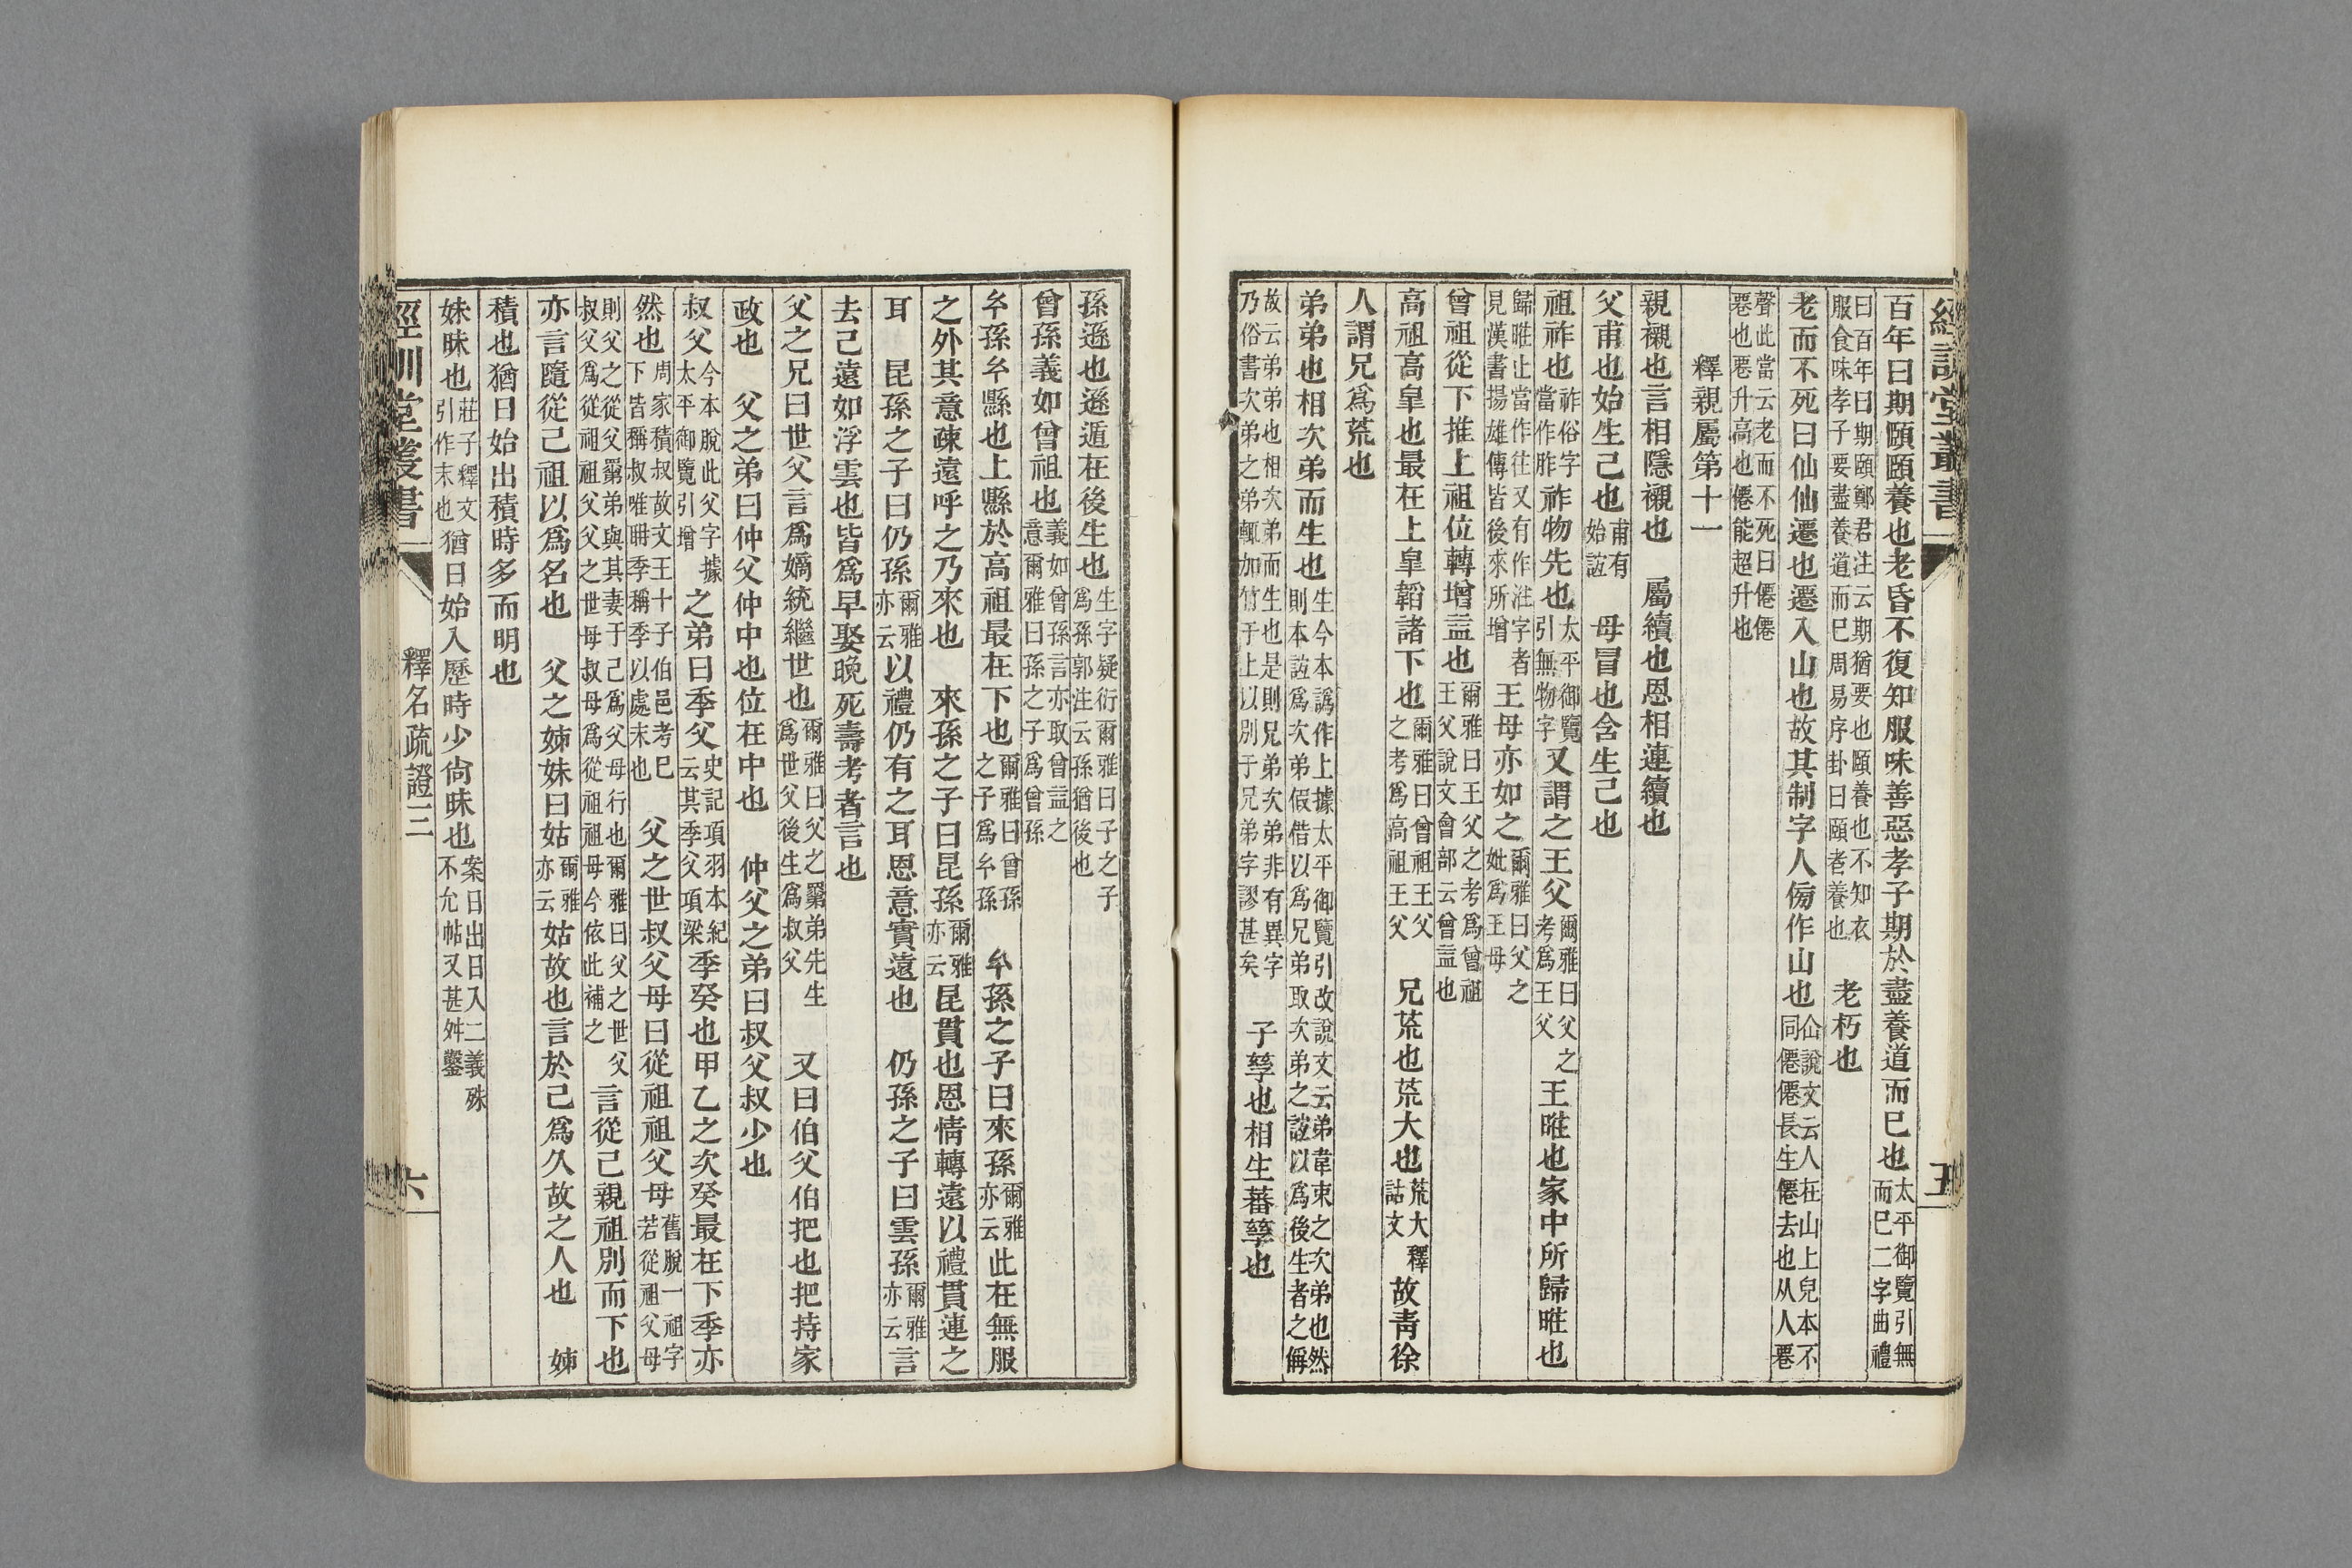 經訓堂叢書
五
百年曰期頤頤養也老昏不復知服味善惡孝子期於盡養道而巳也太平御覽引無而巳二字曲禮
曰百年曰期頤鄭君注云期猶要也頤養也不知衣服食味孝子要盡養道而巳周易序卦曰頤者養也　老朽也
老而不死曰仙仙遷也遷入山也故其制字人㑄作山也仚說文云人在山上皃本不同僊僊長生僊去也从人䙴
聲此當云老而不死曰僊僊䙴也䙴升高也僊能超升也
釋親屬第十一
親襯也言相隱襯也　屬續也恩相連續也
父甫也始生己也甫有始誼　母冒也含生己也
祖祚也祚俗字當作胙祚物先也太平御覽引無物字又謂之王父爾雅曰父之考爲王父王暀也家中所歸暀也
歸暀止當作往又有作泩字者見漢書揚雄傳皆後來所增王母亦如之爾雅曰父之妣爲王母
曾祖從下推上祖位轉增益也爾雅曰王父之考爲曾祖王父說文會部云曾益也
高祖高皐也最在上皐韜諸下也爾雅曰曾祖王父之考爲高祖王父　兄荒也荒大也荒大釋詁文故靑徐
人謂兄爲荒也
弟弟也相次弟而生也生今本譌作上據太平御覽引改說文云弟韋束之次弟也然則本誼爲次弟假借以爲兄弟取次弟之誼以爲後生者之偁
故云弟弟也相次弟而生也是則兄弟次弟非有異字乃俗書次弟之弟輒加竹于上以別于兄弟字謬甚矣　子孳也相生蕃孳也
孫遜也遜遁在後生也生字疑衍爾雅曰子之子爲孫郭注云孫猶後也
曾孫義如曾祖也義如曾孫言亦取曾益之意爾雅曰孫之子爲曾孫
𢆯孫𢆯縣也上縣於高祖最在下也爾雅曰曾孫之子爲𢆯孫　𢆯孫之子曰來孫爾雅亦云此在無服
之外其意疎遠呼之乃來也　來孫之子曰昆孫爾雅亦云昆貫也恩情轉遠以禮貫連之
耳　昆孫之子曰仍孫爾雅亦云以禮仍有之耳恩意實遠也　仍孫之子曰雲孫爾雅亦云言
去己遠如浮雲也皆爲早娶晚死壽考者言也
父之兄曰世父言爲嫡統繼世也爾雅曰父之晜弟先生爲世父後生爲叔父　又曰伯父伯把也把持家
政也　父之弟曰仲父仲中也位在中也　仲父之弟曰叔父叔少也
叔父今本脫此父字據太平御覽引增之弟曰季父史記項羽本紀云其季父項梁季癸也甲乙之次癸最在下季亦
然也周家積叔故文王十子伯邑考巳下皆稱叔唯𣆀季稱季以處末也　父之世叔父母曰從祖祖父母舊脫一祖字若從祖父母
則父之從父晜弟與其妻于己爲父母行也爾雅曰父之世父叔父爲從祖祖父父之世母叔母爲從祖祖母今依此補之言從己親祖別而下也
亦言隨從己祖以爲名也　父之姊妹曰姑爾雅亦云姑故也言於己爲久故之人也　姊
積也猶日始出積時多而明也
妹昧也莊子釋文引作末也猶日始入歷時少尙昧也案日出日入二義殊不允帖又甚舛鑿
經訓堂叢書
釋名疏證三
六